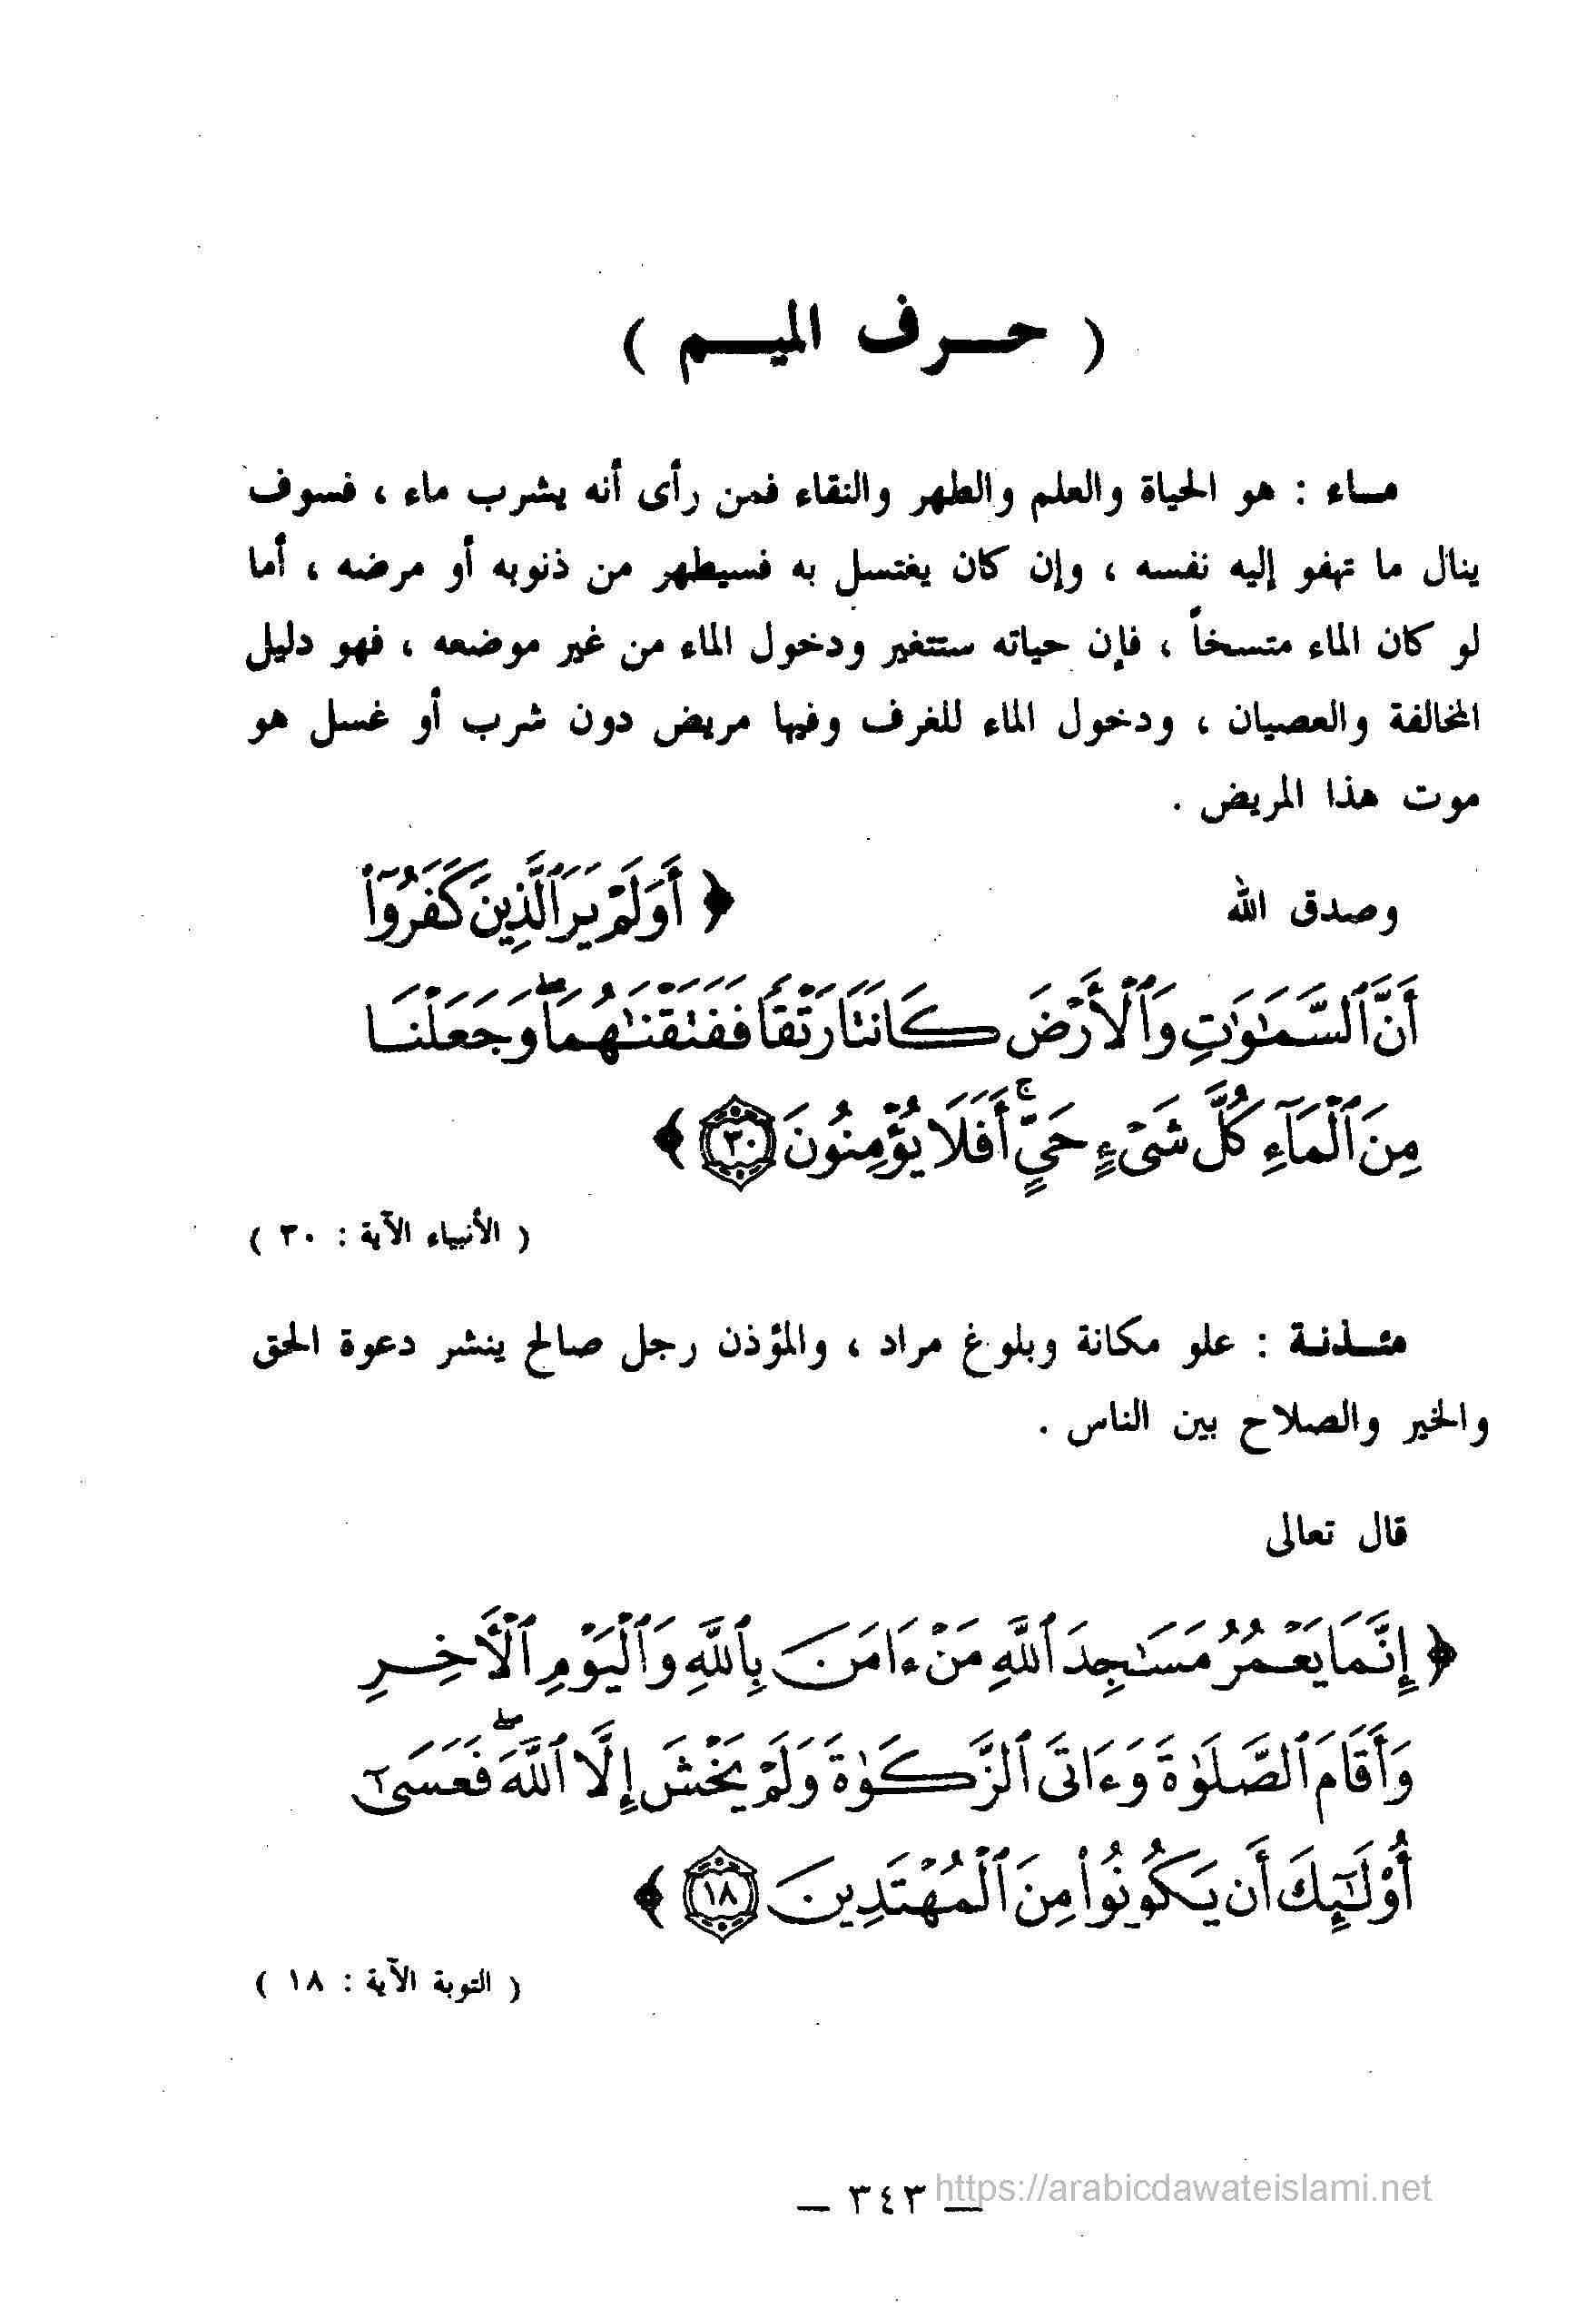 ( حـــرف الميـــم )
مـاء : هو الحياة والعلم والطهر والنقاء فمن رأى أنه يشرب ماء ، فسوف
ينال ما تهفو إليه نفسه ، وإن كان يغتسل به فسيطهر من ذنوبه أو مرضه ، أما
لو كان الماء متسخاً ، فإن حياته ستتغير ودخول الماء من غير موضعه ، فهو دليل
المخالفة والعصيان ، ودخول الماء للغرف وفيها مريض دون شرب أو غسل هو
موت هذا المريض .
وصدق الله ﴿ أَوَلَمْ يَرَ ٱلَّذِينَ كَفَرُوٓا۟
أَنَّ ٱلسَّمَـٰوَٰتِ وَٱلْأَرْضَ كَانَتَا رَتْقًا فَفَتَقْنَـٰهُمَا ۖ وَجَعَلْنَا
مِنَ ٱلْمَآءِ كُلَّ شَىْءٍ حَىٍّ ۚ أَفَلَا يُؤْمِنُونَ ٣٠ ﴾
( الأنبياء الآية : ٣٠ )
مئـذنـة : علو مكانة وبلوغ مراد ، والمؤذن رجل صالح ينشر دعوة الحق
والخير والصلاح بين الناس .
قال تعالى
﴿ إِنَّمَا يَعْمُرُ مَسَـٰجِدَ ٱللَّهِ مَنْ ءَامَنَ بِٱللَّهِ وَٱلْيَوْمِ ٱلْـَٔاخِرِ
وَأَقَامَ ٱلصَّلَوٰةَ وَءَاتَى ٱلزَّكَوٰةَ وَلَمْ يَخْشَ إِلَّا ٱللَّهَ ۖ فَعَسَىٰٓ
أُو۟لَـٰٓئِكَ أَن يَكُونُوا۟ مِنَ ٱلْمُهْتَدِينَ ١٨ ﴾
( التوبة الآية : ١٨ )
— ٣٤٣ —
https://arabicdawateislami.net